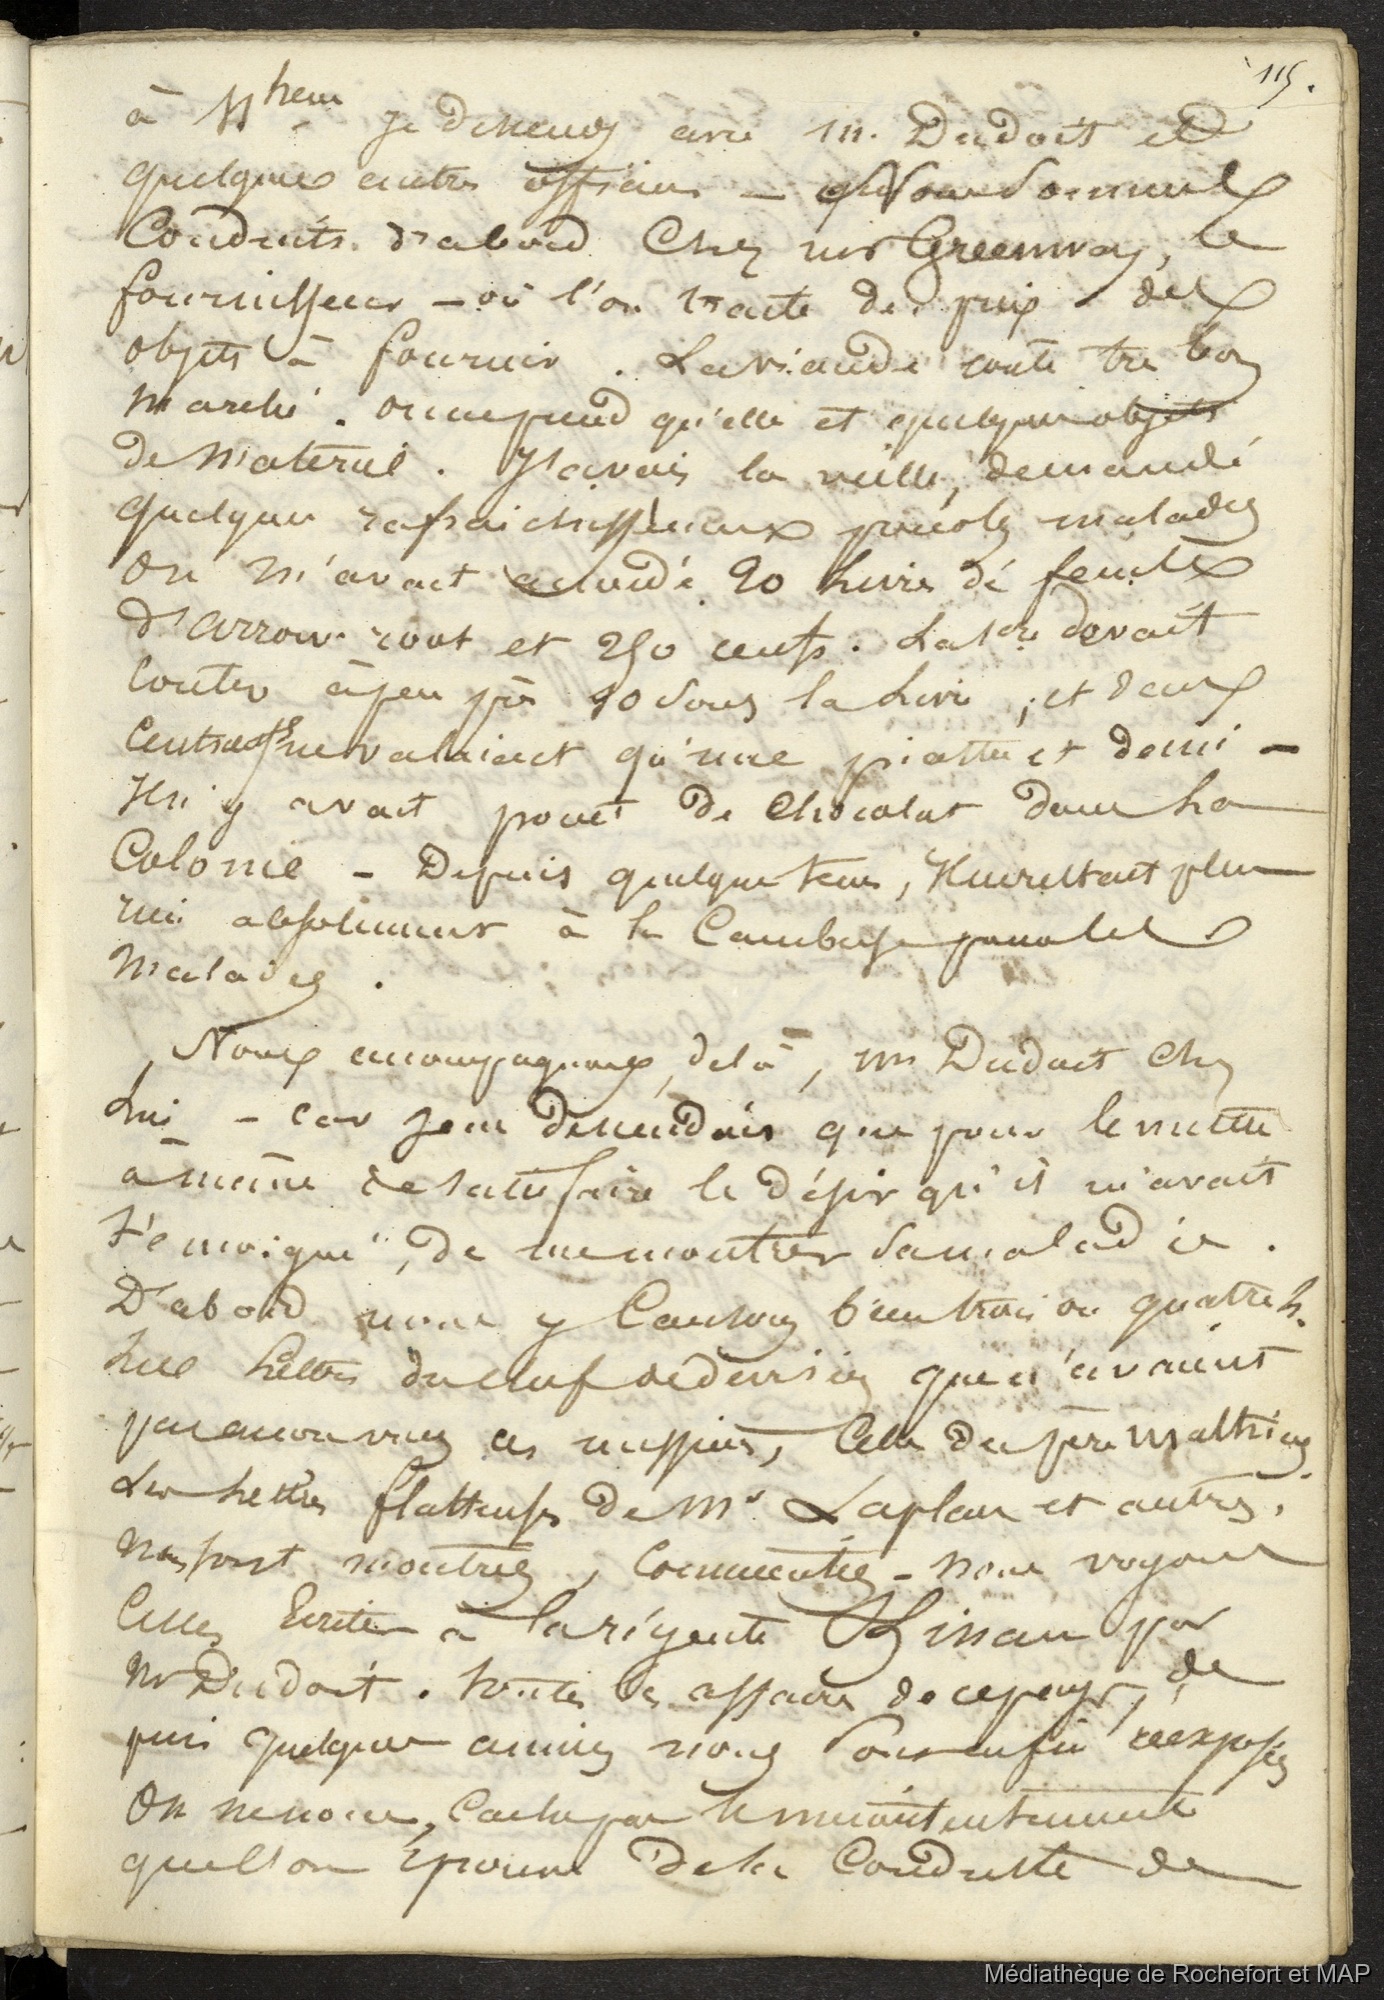 115.
à 11 heur je descends avec m. Dudoit et
quelques autres officiers — nous sommes
Conduits d'abord Chez mr Greenway, le
fournisseur — où l'on traite des prix des
objets à fournir. La viande coute tres bon
marché. on ne prend qu'elle et quelques objets
de materiel. J'avais la veille, demandé
quelques rafraichissements pour les malades
On m'avait accordé 20 livres de feculle
d'arrow root et 250 oeufs. La 1ere devait
couter à peu près 20 sous la livre, et deux
Cents oeufs ne valaient qu'une piastre et demi —
Il n'y avait point de Chocolat dans la
Colonie — Depuis quelque tems, Il ne restait plus
rien absolument à la Cambuse pour les
Malades.
Nous accompagnons, de là, mr Dudoit Chez
Lui — car je ne descendais que pour le mettre
à même de satisfaire le désir qu'il m'avait
témoigné, de me montrer sa maladie.
D'abord nous y Causons bien trois ou quatre h.
Les lettres du chef de division que n'avaient
pas encore vues ces messieurs, Celle du père Mathias
Les lettres flatteuses de Mr Laplace et autres,
nous sont montrées, Commentées — nous voyons
Celles Ecrites à la régente Kinau par
Mr Dudoit. toutes les affaires de ce pays, de
puis quelques années nous sont enfin réexposées
On ne nous Cache pas le mécontentement
que l'on éprouve de la Conduite de
Médiathèque de Rochefort et MAP